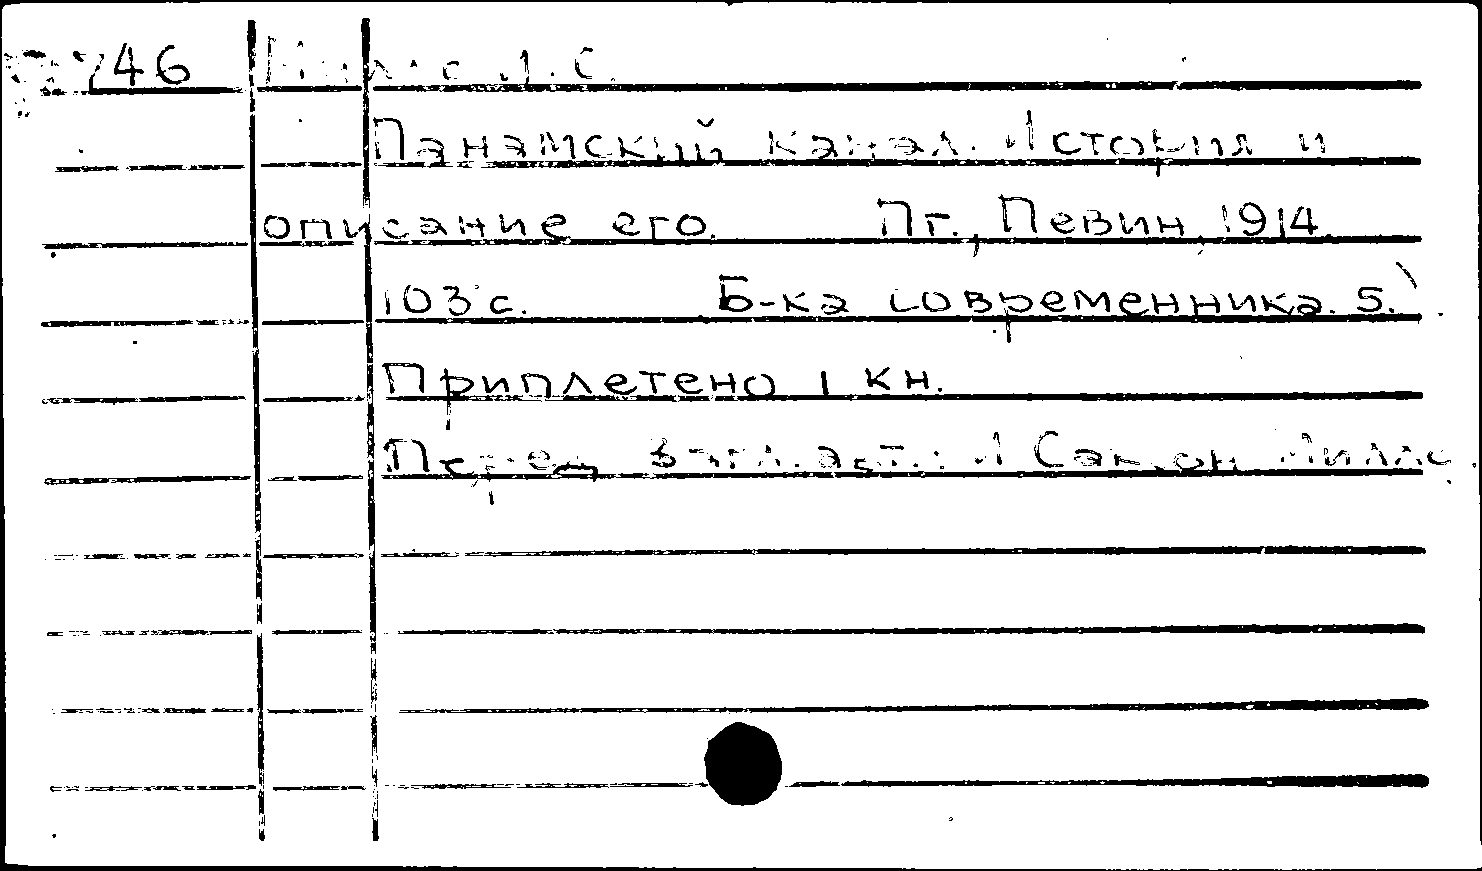 746
Панамский канал. История и
описание его. Пг., Певин, 1914
103 с. Б-ка современника. 5.)
Приплетено 1 кн.
Перед загл. авт.: И Саксон Миллс.